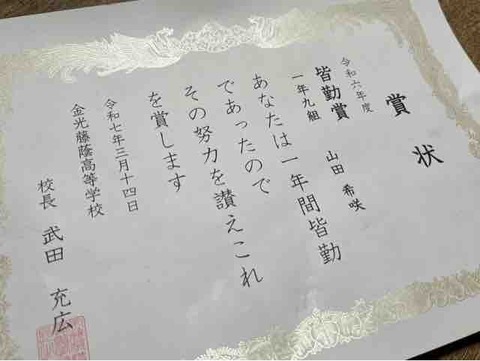 賞状
令和六年度
皆勤賞
一年九組 山田 希咲
あなたは一年間皆勤
であったので
その努力を讃えこれ
を賞します
令和七年三月十四日
金光藤蔭高等学校
校長 武田 充広